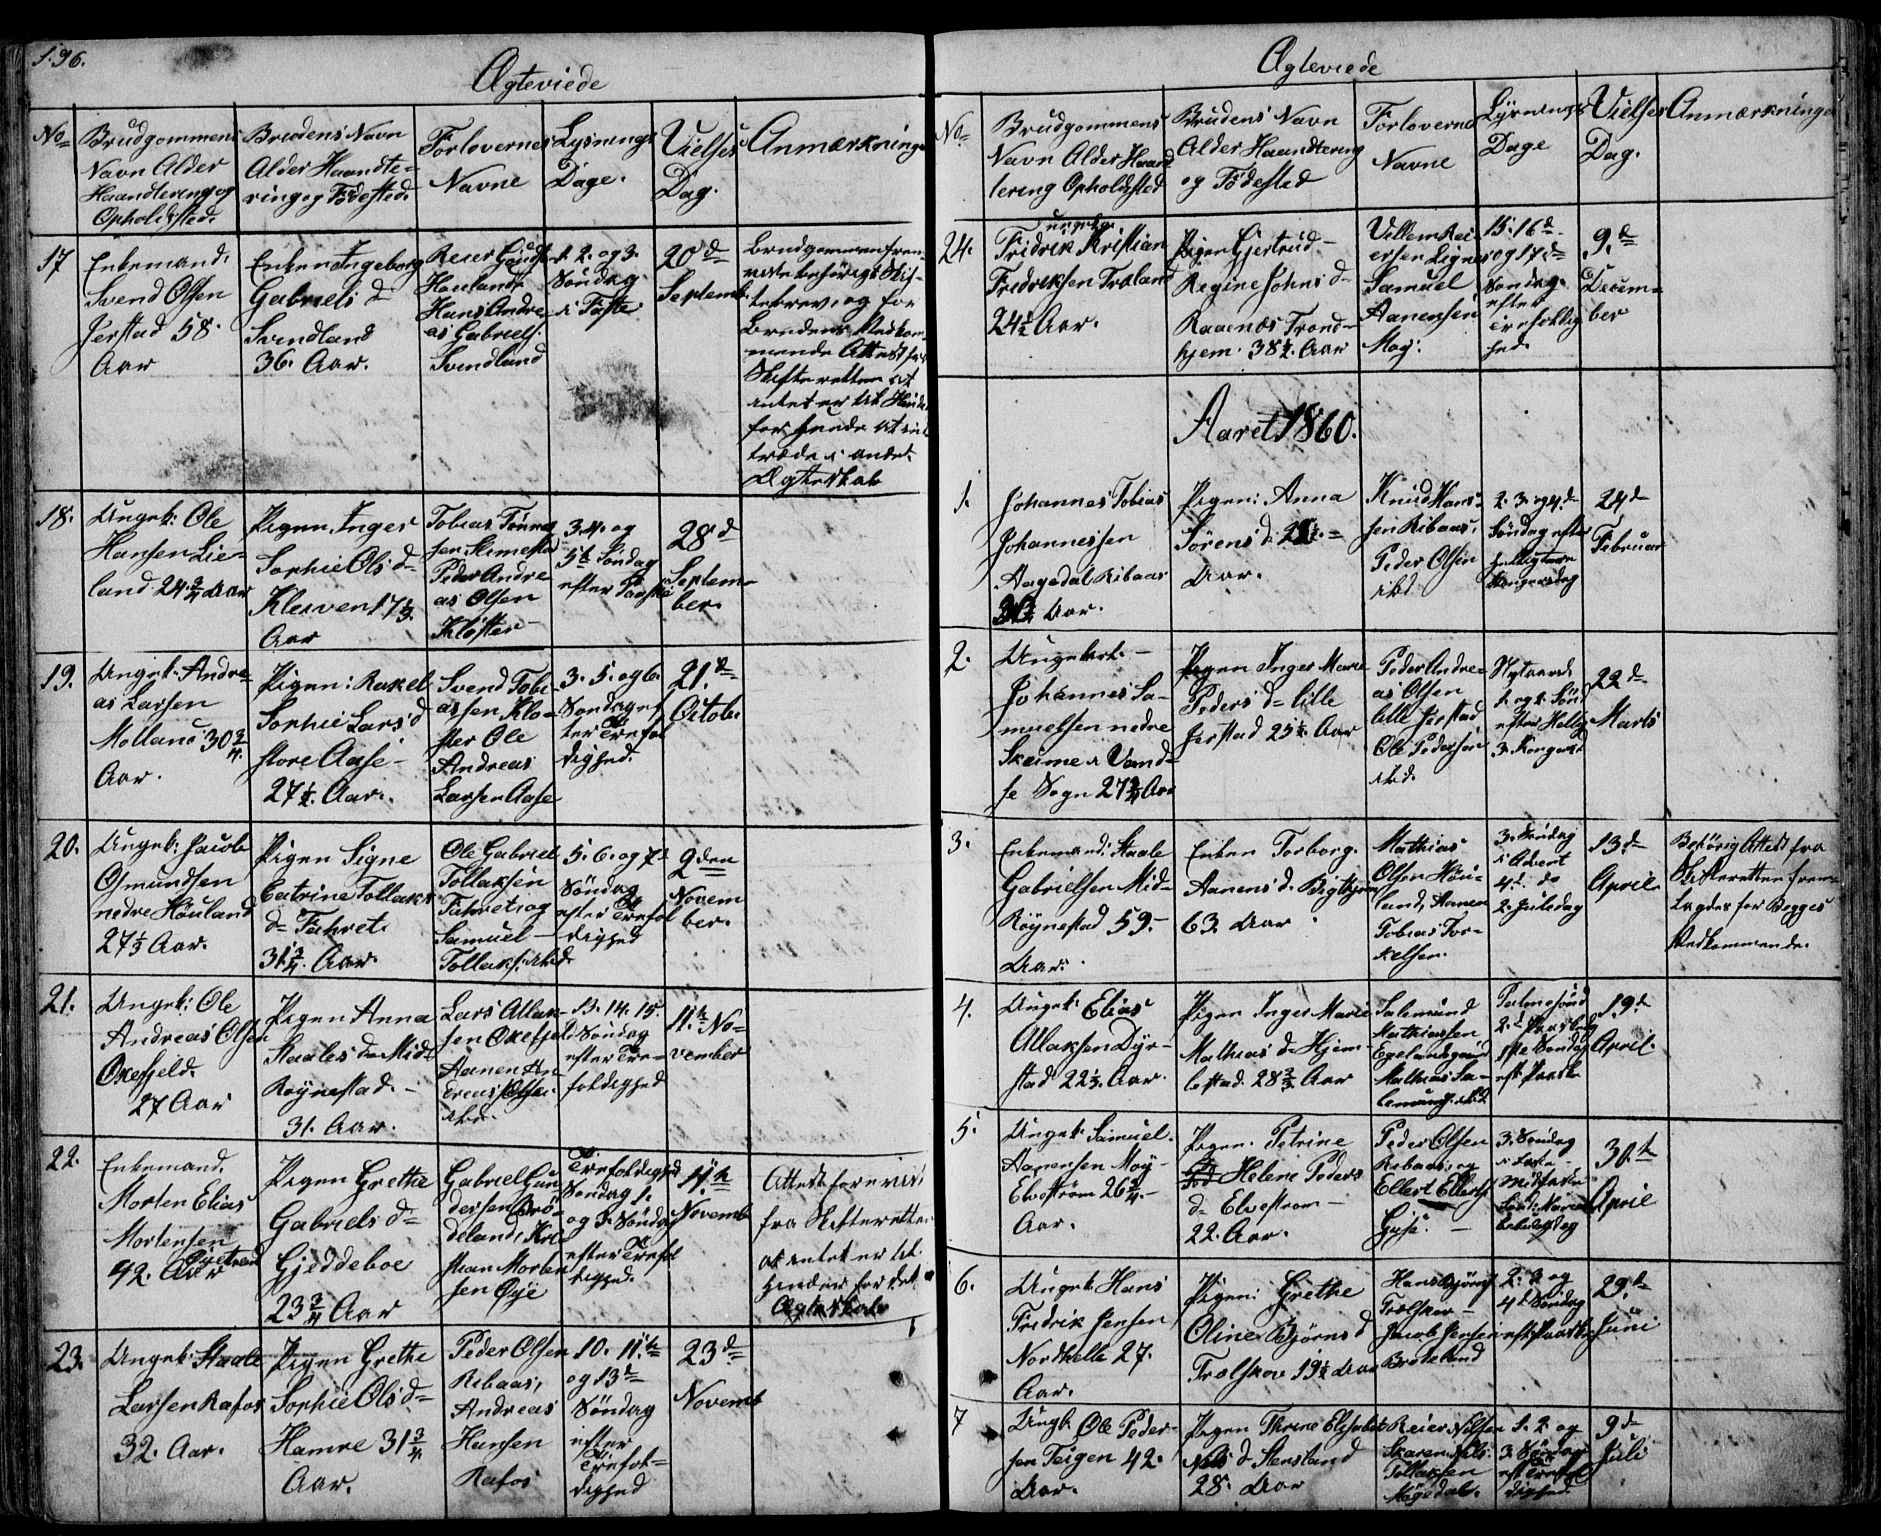 196.
Ægteviede
No
Brudgommens
Navn Alder
Haandtering og
Opholdsted.
Brudens Navn
Alder Haandte-
ring og Fødested.
Forlovernes
Navne
Lysnings
Dage.
Vielses
Dag.
Anmærkninge
17
Enkemand.
Svend Olsen
Jerstad 58.
Aar
Enken Ingeborg
Gabriels d
Svindland
36. Aar.
Reier
Houland
Hans Andre-
as Gabriels.
Svindland
1. 2. og 3.
Søndag
i Faste
20d
Septemb.
Brudgommen frem-
viste behørigt Skif-
tebrev, og for
Brudens Vedkom-
mende Attest fra
Skifteretten at
intet er til Hinder
for hende at ind
træde i andet
Ægteskab
18.
Ungk: Ole
Hansen Lie-
land 24 3/4 Aar
Pigen Inger
Sophie Ols d
Kleiven 17 1/3.
Aar
Tobias Tønnes
sen
Peder Andre-
as Olsen
Kloster
3. 4. og
5te Søndag
efter Paaske
28d
Septem-
ber.
19.
Ungk: Andre-
as Larsen
Molland 30 3/4.
Aar.
Pigen: Rakel
Sophie Lars d
store Aase
27 1/2. Aar.
Svend Tobi-
assen Klo-
ster Ole
Andreas
Larsen Aase
3. 5. og 6.
Søndag ef
ter Trefol
dighed.
21.d
Octob.
20.
Ungk: Jacob
Osmundsen
nedre Høuland
27 1/3 Aar.
Pigen Signe
Catrine Tollaks
d
31 3/4. Aar.
Ole Gabriel
Tollaksen
og
Samuel
Tollaks. ibid.
5. 6. og 7d
Søndag
efter Trefol
dighed
2den
Novem
ber.
21.
Ungk: Ole
Andreas Olsen
Okefjeld.
27 Aar
Pigen Anna
Staales d Midt
Røynestad.
31. Aar.
Lars Atlak-
sen Okefjeld
Aanen An
dreas Olsen
ibid.
13. 14. 15.
Søndag
efter Tre-
foldighed
11.te No-
vember
22.
Enkemand.
Morten Elias
Mortensen
42. Aar
Pigen Grethe
Gabriels d
Gjeddeboe
23 3/4 Aar
Gabriel Gun
dersen Brø-
deland, Kri
stian Morten
sen Øye
Trefoldighed
Søndag 1.
og 3. Søndag
efter Trefol
dighed.
11te
Novemb
Attest forevist
fra Skifteretten
at intet er til
hinder for det
Ægteskab
23.
Ungk: Staale
Larsen Rafos
32. Aar.
Pigen Grethe
Sophie Ols d
Hamre 31 3/4
Aar.
Peder Olsen
Ribaas,
Andreas
Hansen
Rafos
10. 11.te
og 13d
Søndag
efter
Trefol-
dighed
23d
Novemb
Ægteviede
No
Brudgommens
Navn Alder Haand
tering Opholdsted
Brudens Navn
Alder Haandtering
og Fødested
Forlovernes
Navne
Lysnings
Dage
Vielses
Dag.
Anmærkninge
24.
Ungekar
Fridrik Kristian
Fredriksen Træland
24 1/2 Aar.
Pigen Gjertrud
Regine Johns d
Trond-
hjem. 38 1/2. Aar
Villem Rei-
ersen
Samuel
Aanensen
Moy.
15. 16d
og 17de
Søndag.
efter
Trefoldig
hed.
9.d
Decem-
ber
Aaret 1860.
1.
Johannes Tobias
Johannessen
Aagedal Ribaas
Aar.
Pigen: Anna
Sørens d
Aar.
Knud Hans-
sen Ribaas,
Peder Olsen
ibd
2. 3. og 4.d
Søndag efter
helligtre
Kongersdag
24d
Februar
2.
Ungekarl.
Johannes Sa-
muelsen nedre
Skeime i Vand-
se Sogn 27 3/4 Aar
Pigen Inger Marie
Peders d lille
Jerstad 25 1/2 Aar
Peder Andre-
as Olsen
lille Jerstad
Ole Pedersen
ibid.
Nytaarsd.
1. og 2. Sønd
efter Hellig
3. Kongersd
22d
Marts
3.
Enkemand: Staale
Gabrielsen Mid-
Røynestad 59.
Aar.
Enken Torborg.
Aanens d.
63. Aar
Mathias
Olsen Høu-
land, Aanen
Tobias Tor-
kelsen.
3. Søndag
i Advent
4d. do
2. Juledag
13.d
April
Behørig Attest fra
Skifteretten frem-
lagdes for Begges
Vedkommende.
4.
Ungk: Elias
Atlaksen Dyr-
stad 22 1/3. Aar.
Pigen Inger Marie
Mathias d Hjem-
lestad. 28 2/3 Aar
Salemund
Mathiassen
Egelandsgaard
Mathias Sa-
lemunds. ibid
Palmesønd
2.d Paaskedag
1ste Søndag
eft. Paaske
19.d
April.
5.
Ungk: Samuel.
Aanensen Moy-
Elvestrøm 26 3/4.
Aar.
Pigen: Petrine
Helene Peders
d Elvestrøm
22. Aar.
Peder Olsen
Ribaas, og
Ellert Ellerts
Gyse.
3. Søndag
i Faste
Midfaste
Sønd: Mariæ
bebudelsedag
30.te
April
6.
Ungk: Hans
Fredrik Jensen
Nordhelle 27.
Aar.
Pigen: Grethe
Oline Bjørns d
Trælskov 19 1/2 Aar
Hans Bjørns
Trælskov
Jacob Jensen
Brødeland
2. 3. og
4d Søndag
eft. Paaske
29.d
Juni
7
Ungk Ole Peder-
sen Teigen 42.
Aar.
Pigen Thrine Elisabet
Nils d Stensland
28. Aar
Reier Nilsen
Skaren Nils
Tollaksen
Møgedal.
1. 2. og
3. Søndag
eft Trefol
dighed
9d
Juli